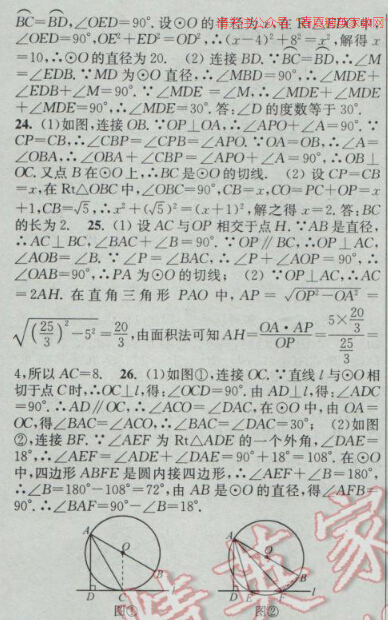 B͡C=B͡D,∠OED=90°.设⊙O的半径为x,在Rt△OED中,
∠OED=90°,OE²+ED²=OD²,∴(x-4)²+8²=x²,解得x
=10,∴⊙O的直径为20. (2)连接BD.∵B͡C=B͡D,∴∠M
=∠EDB.∵MD为⊙O直径,∴∠MBD=90°,∴∠MDE+
∠EDB+∠M=90°.∵∠MDE=∠M,∴∠MDE+∠MDE
+∠MDE=90°,∴∠MDE=30°.答:∠D的度数等于30°.
24. (1)如图,连接OB.∵OP⊥OA,∴∠APO+∠A=90°.∵
CP=CB,∴∠CBP=∠CPB=∠APO.∵OA=OB,∴∠A=
∠OBA,∴∠OBA+∠CBP=∠APO+∠A=90°,∴OB⊥
OC.又点B在⊙O上,∴BC是⊙O的切线. (2)设CP=CB
=x,在Rt△OBC中,∠OBC=90°,CB=x,CO=PC+OP=x
+1,CB=√5,∴x²+(√5)²=(x+1)²,解之得x=2.答:BC
的长为2. 25. (1)设AC与OP相交于点H.∵AB是直径,
∴AC⊥BC,∠BAC+∠B=90°.∵OP∥BC,∴OP⊥AC,
∠AOB=∠B.∵∠P=∠BAC,∴∠P+∠AOP=90°,∴
∠OAB=90°,∴PA为⊙O的切线; (2)∵OP⊥AC,∴AC
=2AH.在直角三角形PAO中,AP=√(OP²-OA²)=
√((25/3)²-5²)=20/3,由面积法可知AH=OA·AP/OP=(5×20/3)/(25/3)=
4,所以AC=8. 26. (1)如图①,连接OC.∵直线l与⊙O相
切于点C时,∴OC⊥l,得:∠OCD=90°.由AD⊥l,得:∠ADC
=90°.∴AD∥OC,∴∠ACO=∠DAC,在⊙O中,由OA=
OC,得∠BAC=∠ACO,∴∠BAC=∠DAC=30°; (2)如图
②,连接BF.∵∠AEF为Rt△ADE的一个外角,∠DAE=
18°,∴∠AEF=∠ADE+∠DAE=90°+18°=108°.在⊙O
中,四边形ABFE是圆内接四边形,∴∠AEF+∠B=180°,
∴∠B=180°-108°=72°,由AB是⊙O的直径,得∠AFB=
90°.∴∠BAF=90°-∠B=18°.
A O B D C l
A O B D E F l
图① 图②